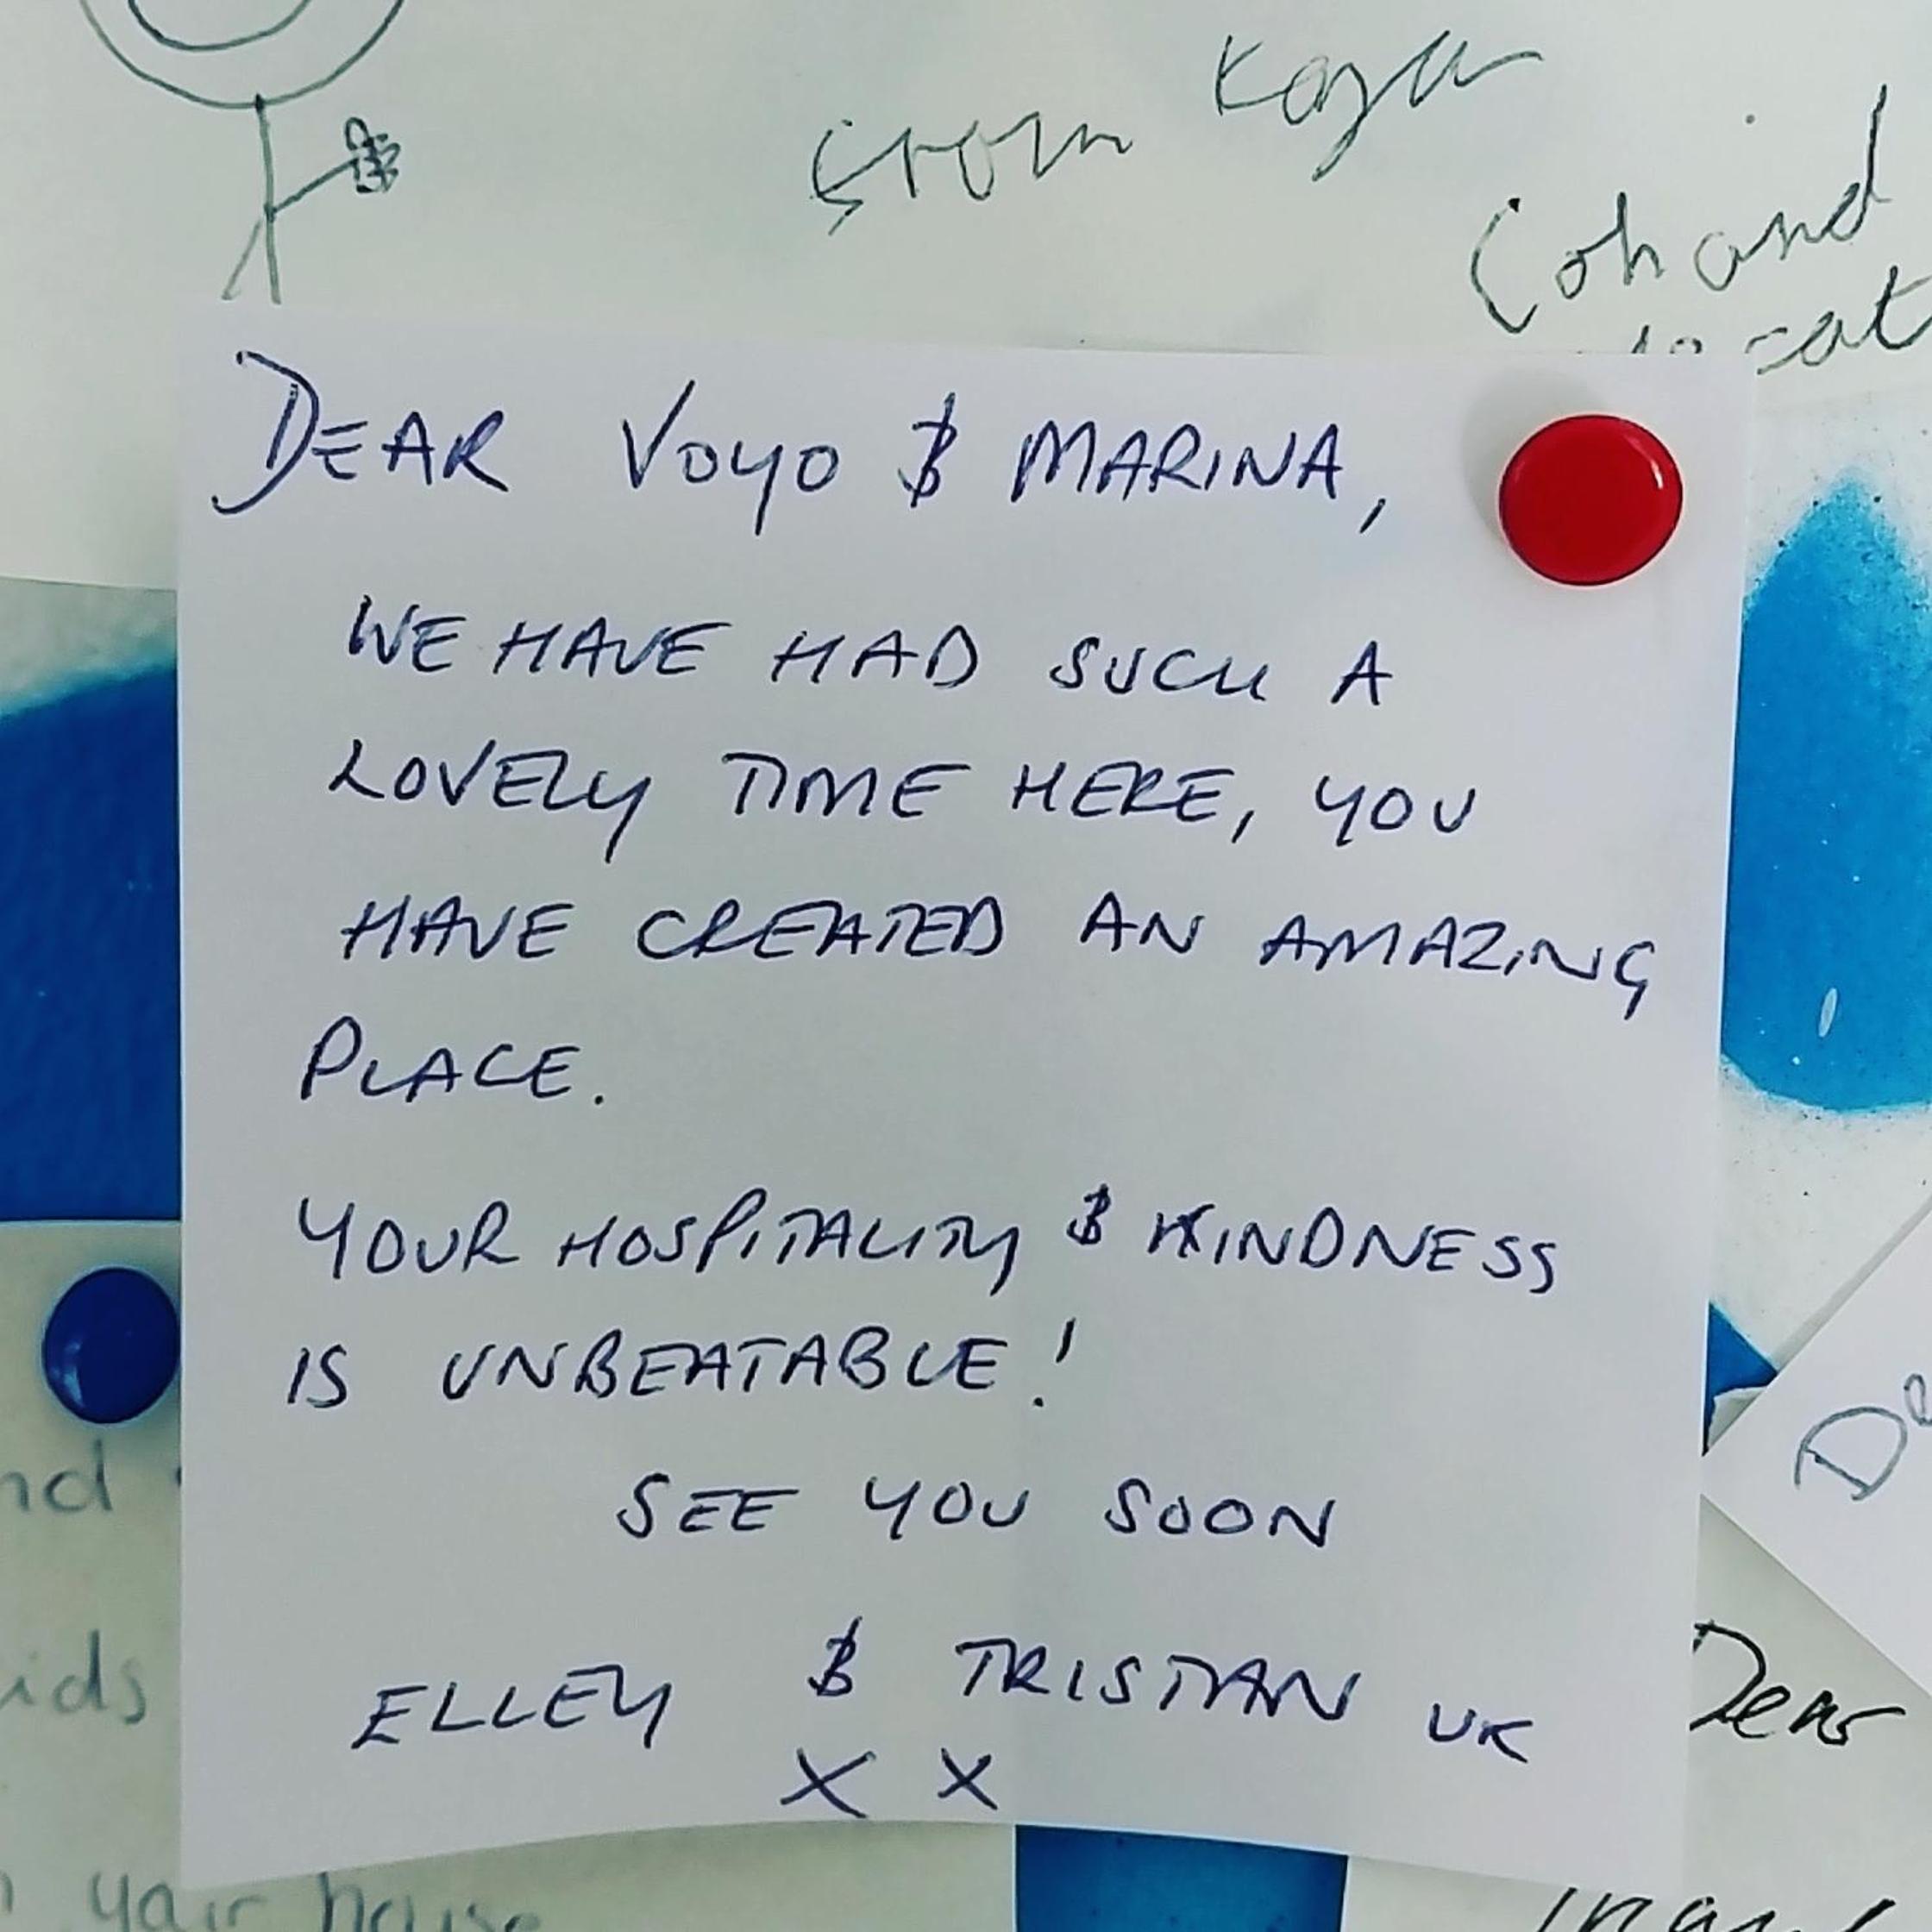 from Kaya
Coh and
DEAR VOYO & MARINA,
WE HAVE HAD SUCH A
LOVELY TIME HERE, YOU
HAVE CREATED AN AMAZING
PLACE.
YOUR HOSPITALITY & KINDNESS
IS UNBEATABLE!
SEE YOU SOON
ELLEY & TRISTAN UK
X X
nd
ids
Dear
your house